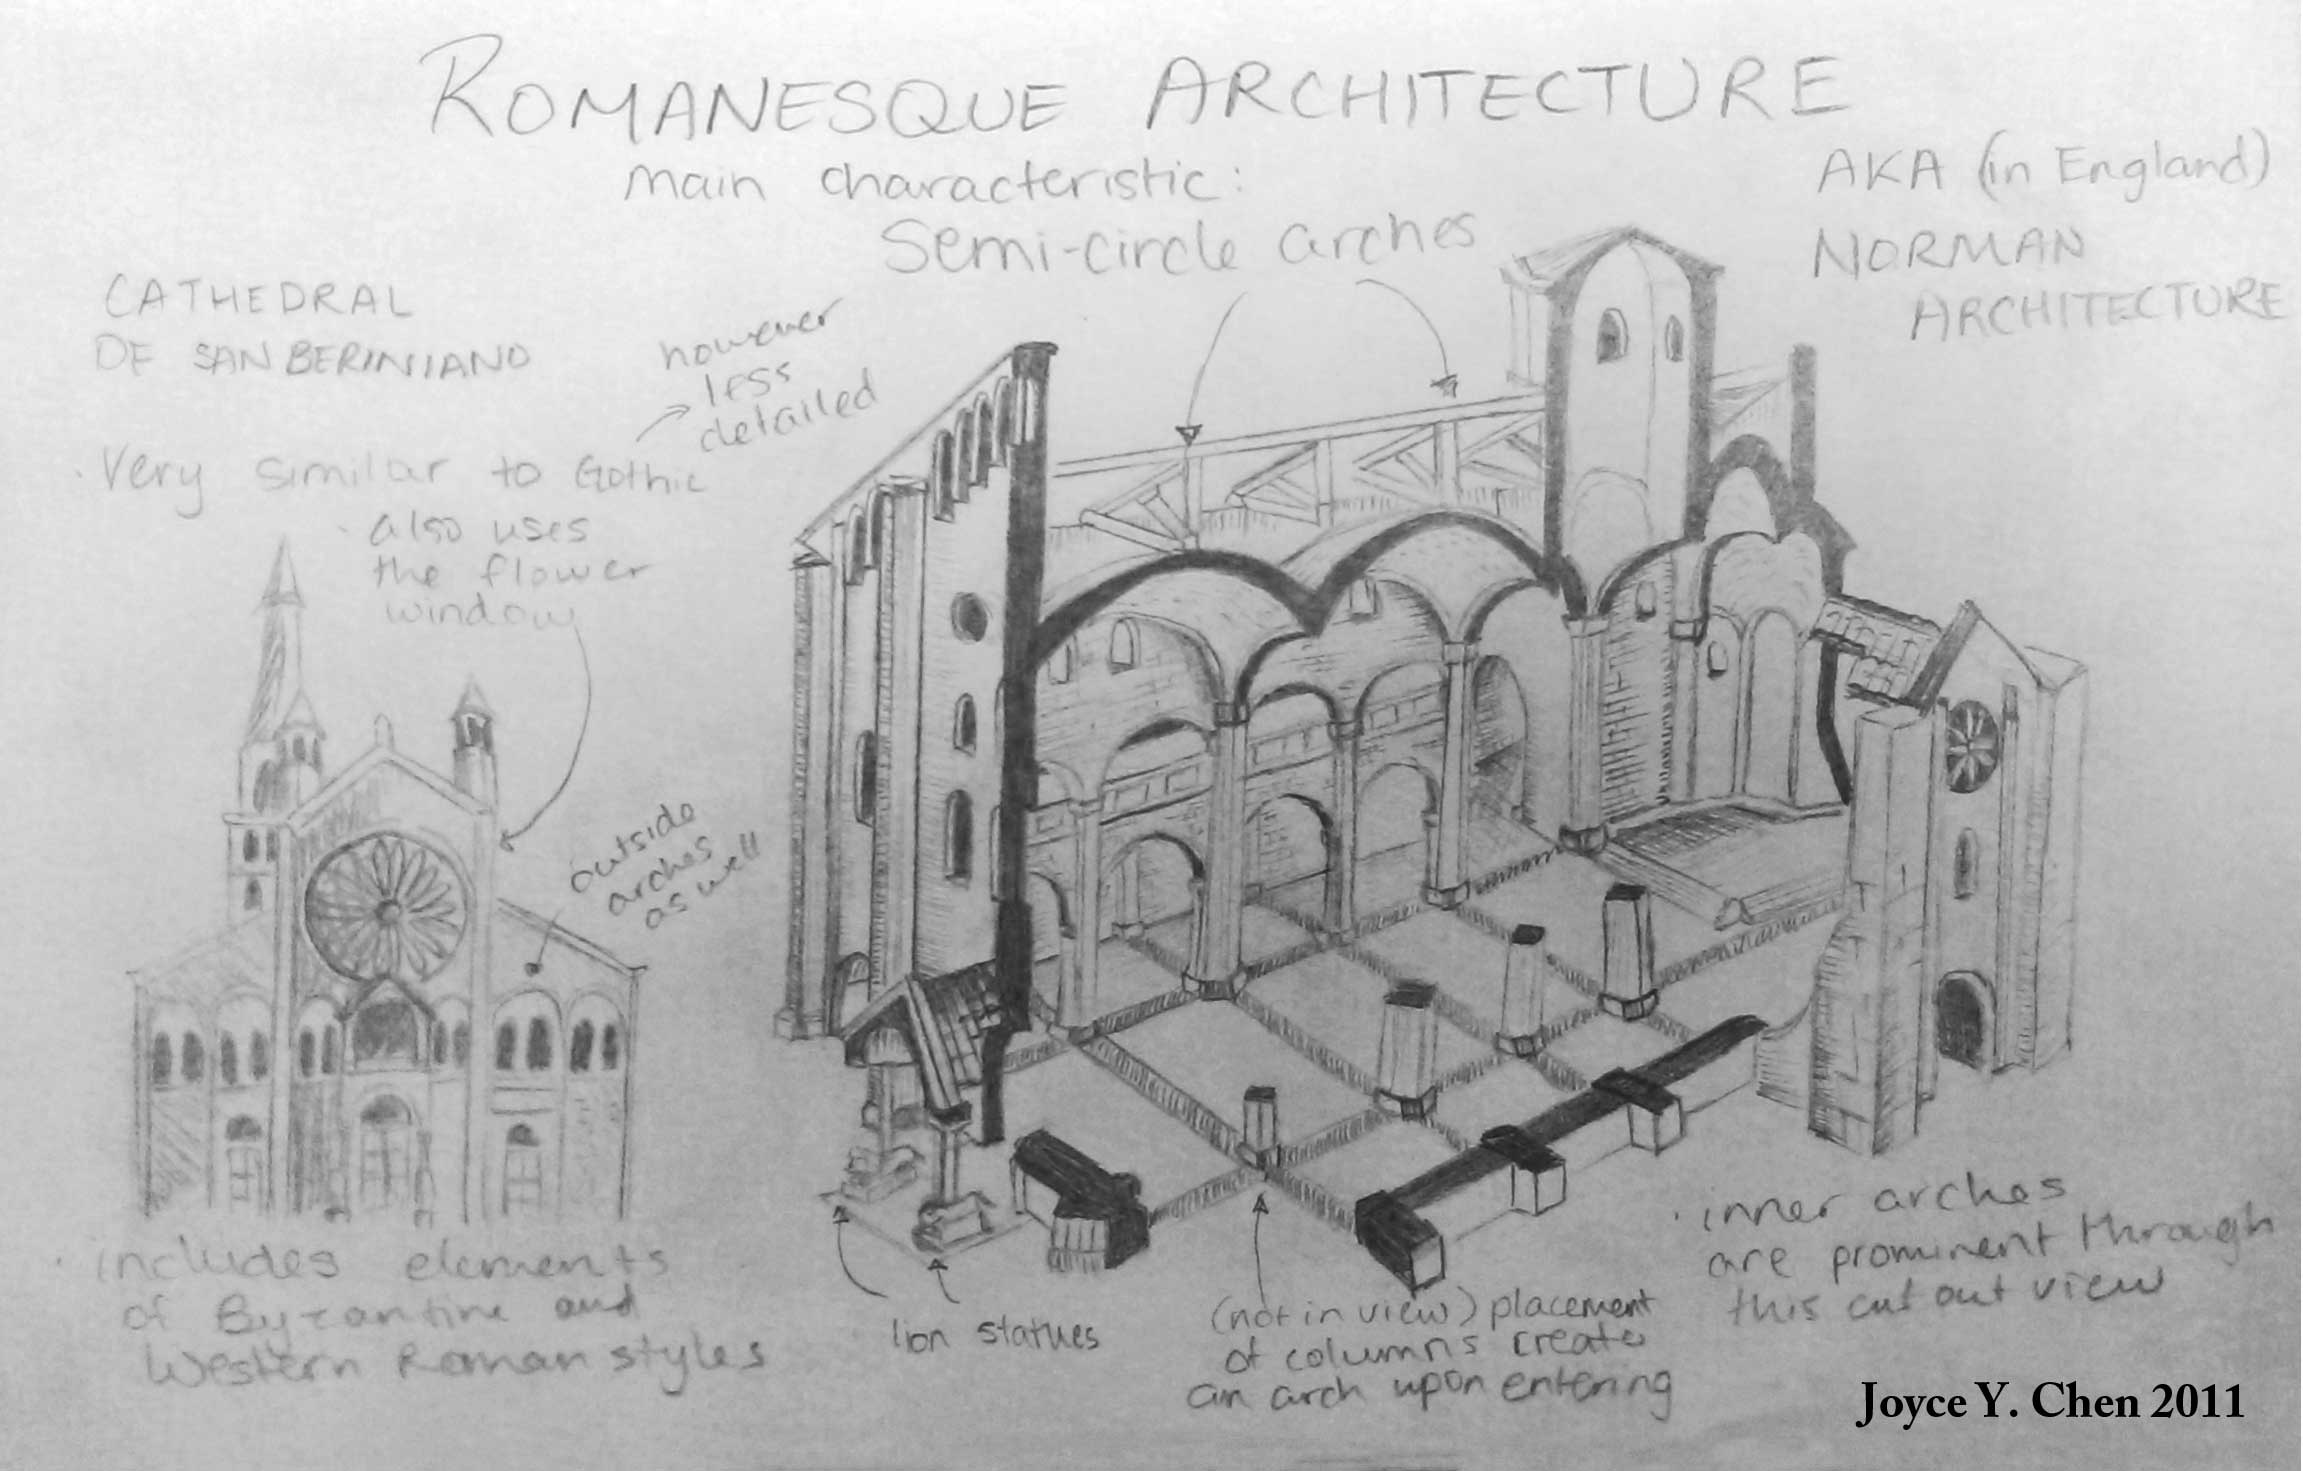 ROMANESQUE ARCHITECTURE
main characteristic:
Semi-circle arches
AKA (in England)
NORMAN
ARCHITECTURE
CATHEDRAL
DE SAN BERINIANO
however
less
detailed
· Very similar to Gothic
· also uses
the flower
window
outside
arches
as well
· includes elements
of Byzantine and
Western Roman styles
lion statues
(not in view) placement
of columns create
an arch upon entering
· inner arches
are prominent through
this cut out view
Joyce Y. Chen 2011